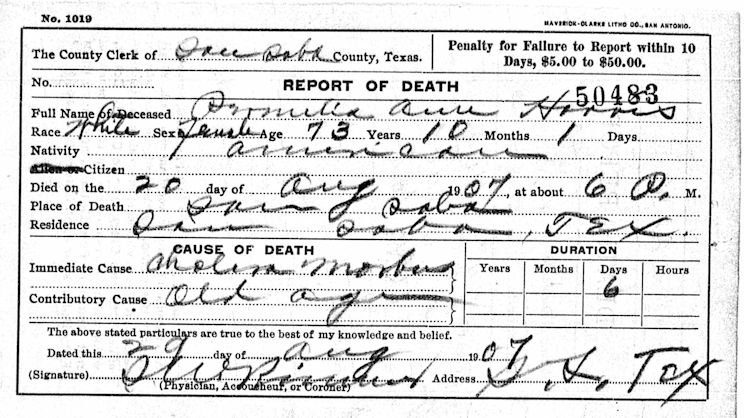 No. 1019
MAVERICK-CLARKE LITHO CO., SAN ANTONIO.
The County Clerk of San Saba County, Texas.
Penalty for Failure to Report within 10
Days, $5.00 to $50.00.
No. REPORT OF DEATH
50483
Full Name of Deceased Ann Harris
Race White Sex Female Age 73 Years 10 Months 1 Days
Nativity American
Alien or Citizen
Died on the 20 day of Aug 1907, at about 6 P. M.
Place of Death San Saba
Residence San Saba, Tex.
CAUSE OF DEATH
DURATION
Immediate Cause Cholera Morbus
Years Months Days Hours
6
Contributory Cause Old age
The above stated particulars are true to the best of my knowledge and belief.
Dated this 29 day of Aug 1907
(Signature) Address S. S. Tex
(Physician, Accoucheur, or Coroner)